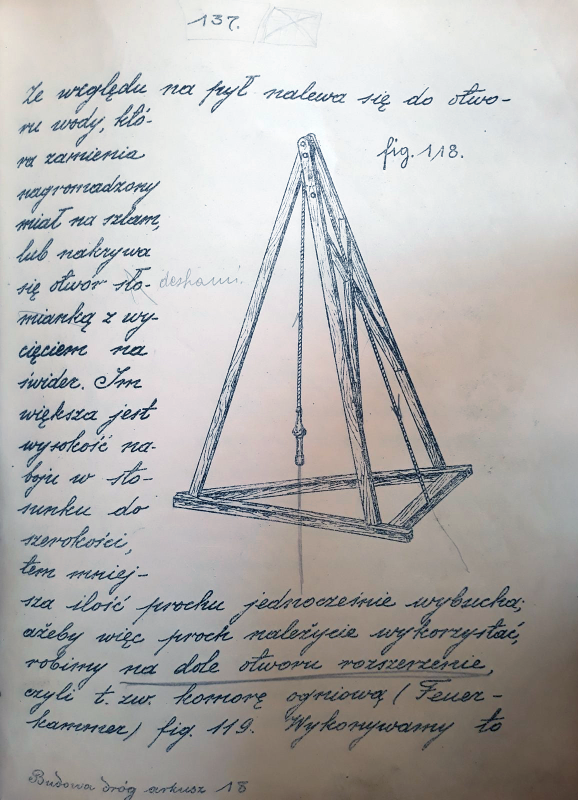 137.
Ze względu na pył nalewa się do otwo-
ru wody, któ-
ra zamienia
nagromadzony
miał na szlam,
lub nakrywa
się otwór sło-
mianką z wy-
cięciem na
świder. Im
większa jest
wysokość na-
boju w sto-
sunku do
szerokości,
tem mniej-
sza ilość prochu jednocześnie wybucha;
ażeby więc proch należycie wykorzystać,
robimy na dole otworu rozszerzenie,
czyli t. zw. komorę ogniową (Feuer-
kammer) fig. 119. Wykonywamy to
fig. 118.
deskami.
Budowa dróg arkusz 18